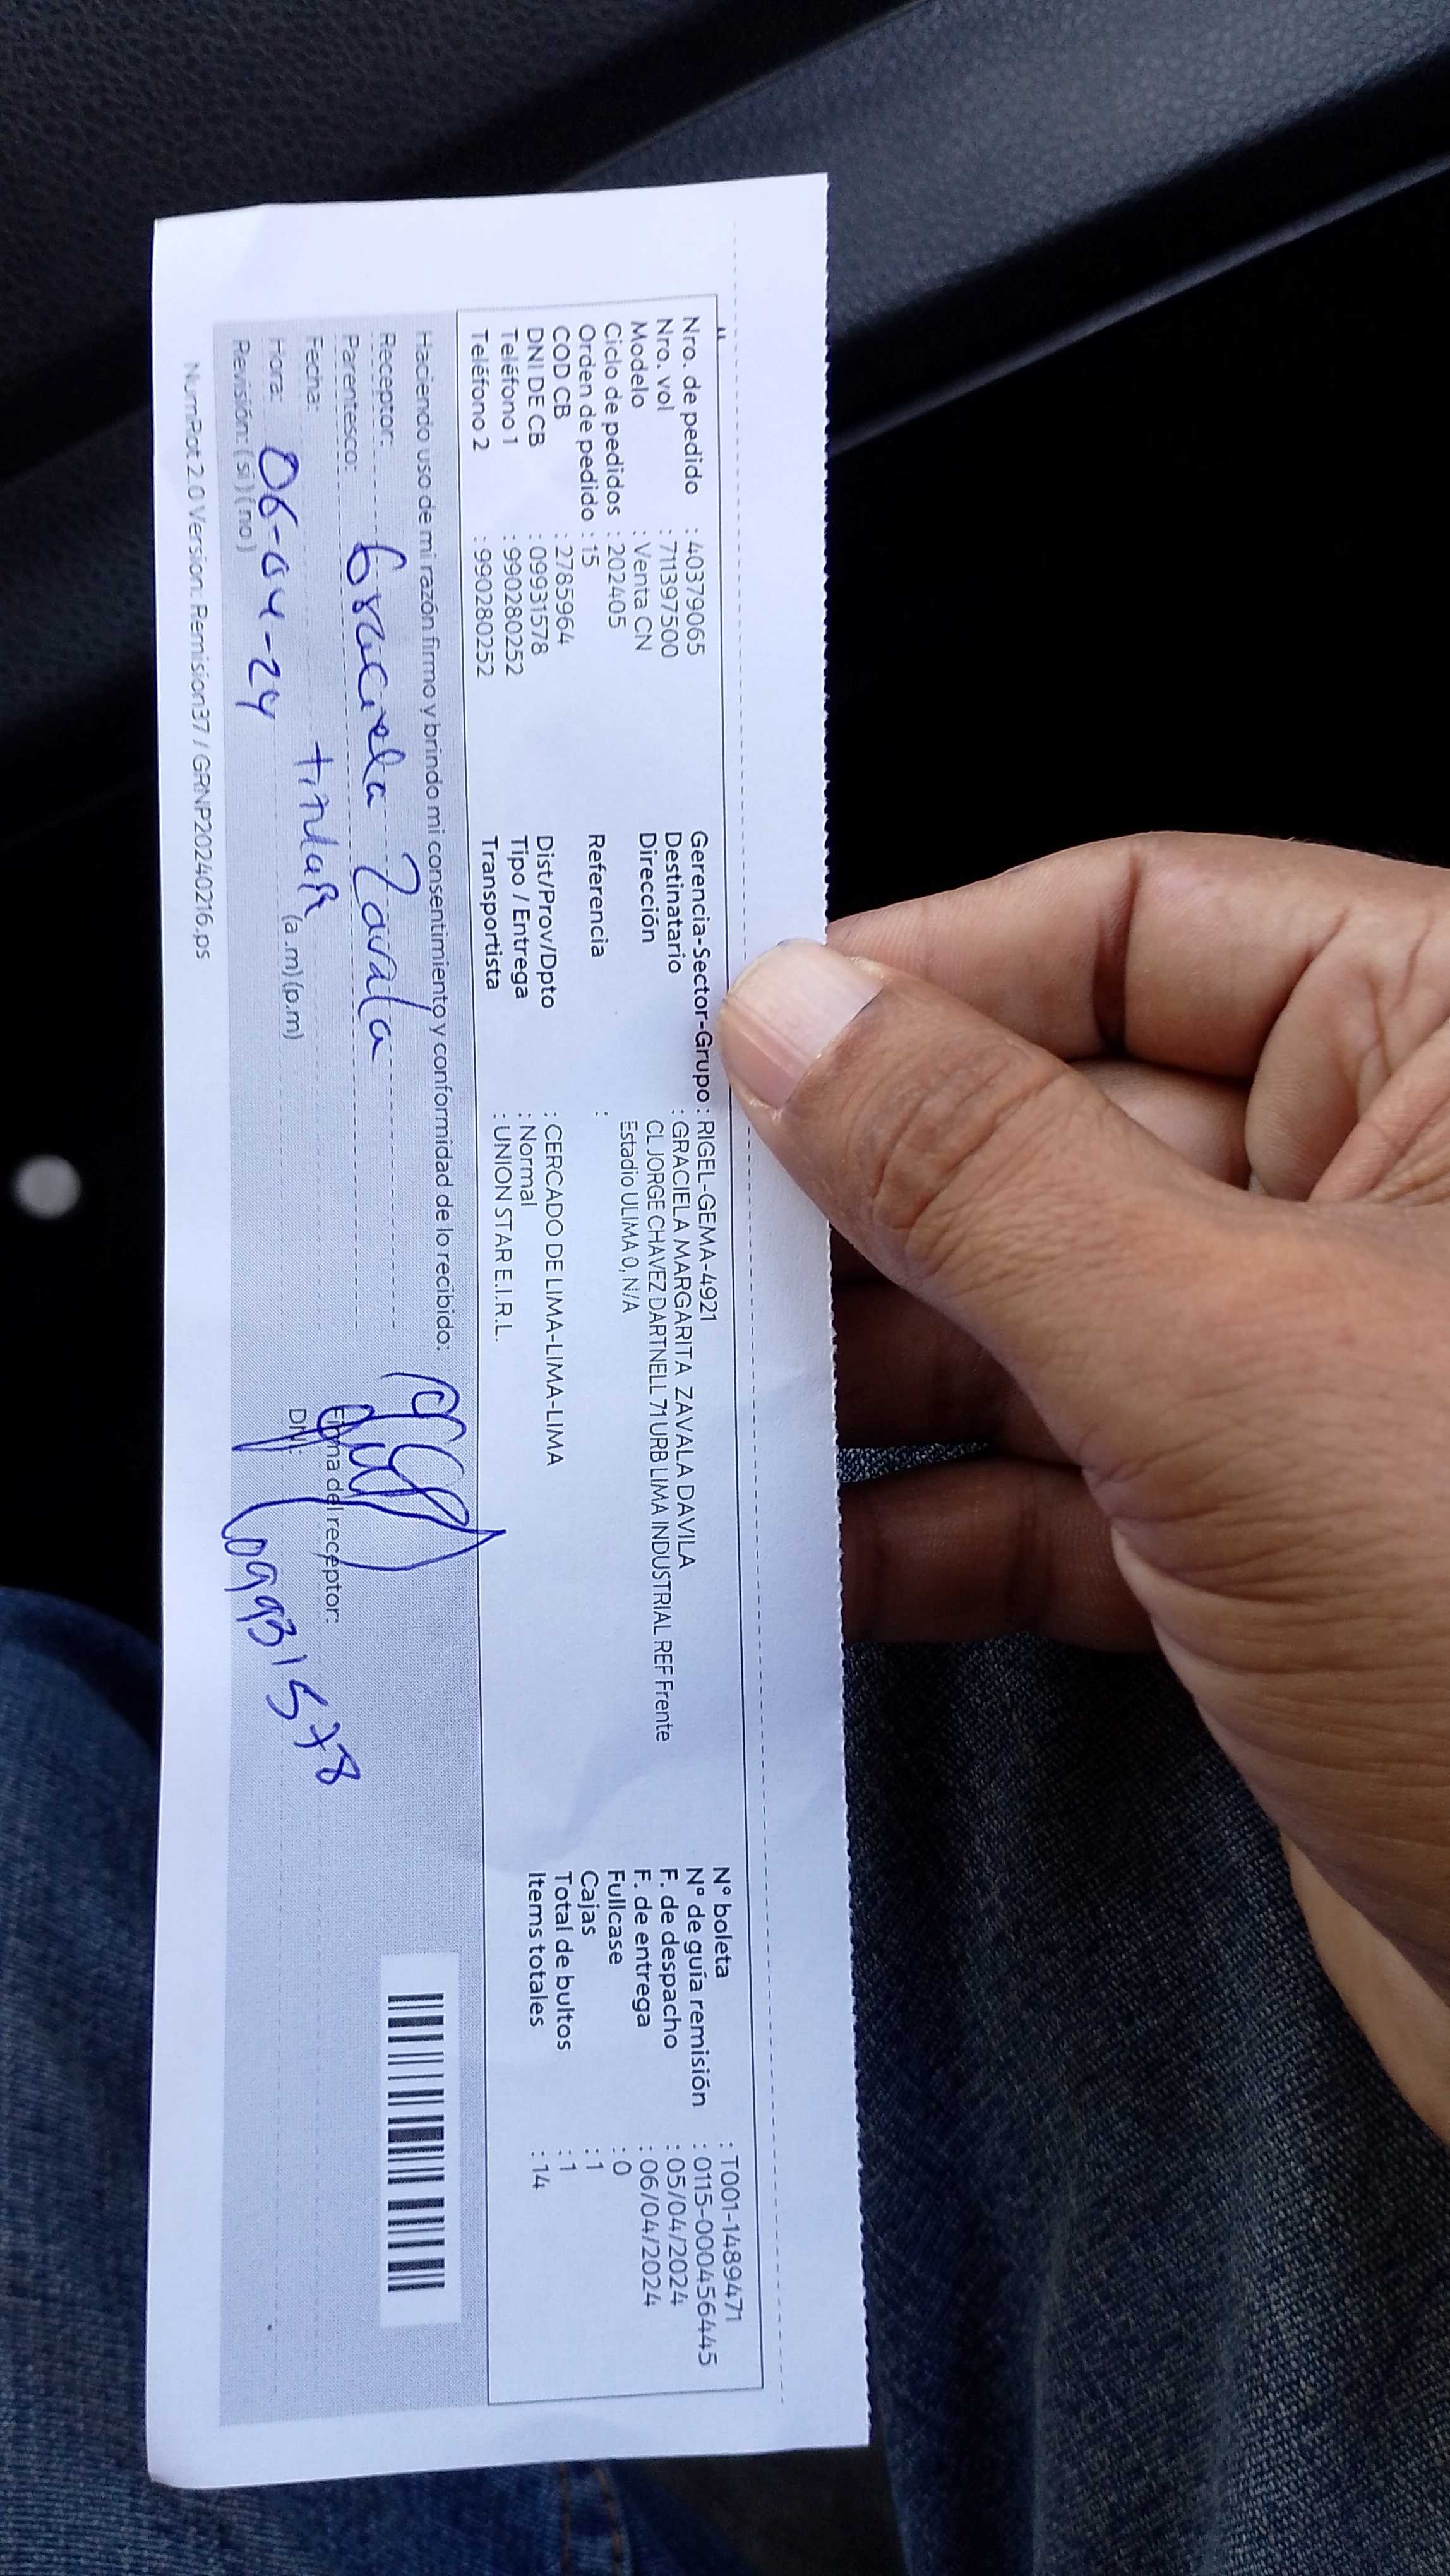 Nro. de pedido : 40379065
Nro. vol : 711397500
Modelo : Venta CN
Ciclo de pedidos : 202405
Orden de pedido : 15
COD CB : 2785964
DNI DE CB : 09931578
Teléfono 1 : 990280252
Teléfono 2 : 990280252
Gerencia-Sector-Grupo : RIGEL-GEMA-4921
Destinatario : GRACIELA MARGARITA ZAVALA DAVILA
Dirección CL JORGE CHAVEZ DARTNELL 71 URB LIMA INDUSTRIAL REF Frente
Estadio ULIMA 0, N/A
Referencia :
Dist/Prov/Dpto : CERCADO DE LIMA-LIMA-LIMA
Tipo / Entrega : Normal
Transportista : UNION STAR E.I.R.L.
N° boleta : T001-1489471
N° de guía remisión : 0115-000456445
F. de despacho : 05/04/2024
F. de entrega : 06/04/2024
Fullcase : 0
Cajas : 1
Total de bultos : 1
Items totales : 14
Haciendo uso de mi razón firmo y brindo mi consentimiento y conformidad de lo recibido:
Receptor: Graciela Zavala
Parentesco: titular
Firma del receptor:
Fecha: 06-04-24
Hora: (a.m)(p.m)
DNI: 09931578
Revisión: ( si ) ( no )
NumRot 2.0 Version: Remision37 / GRNP20240216.ps